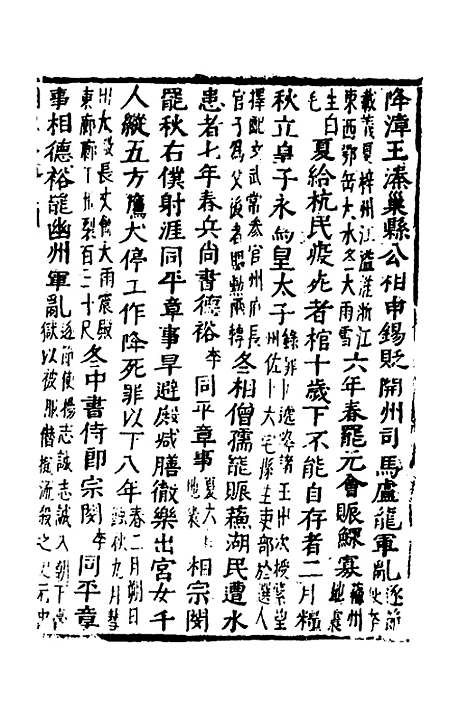 降漳王湊巢縣公相申錫貶開州司馬盧龍軍亂逐節使李
載義夏梓州江溢淮浙江東西鄂岳大水冬大雨雪六年春罷元會賑鰥寡蘇州地震
生白毛夏給杭民疫死者棺十歲下不能自存者二月糧
秋立皇子永為皇太子諸王出次授緊望州佐吏部於選人
擇文武常參官州府長官子為父後者賜勳兩轉冬相僧孺罷賑蘇湖民遭水
患者七年春兵尚書德裕李同平章事夏大相宗閔
罷秋右僕射涯同平章事旱避殿減膳徹樂出宮女千
人縱五方鷹犬停工作降死罪以下八年春二月朔日蝕秋九月彗
出太長丈餘大雨震殿東廊廊下地裂百三十尺冬中書侍郎宗閔李同平章
事相德裕罷幽州軍亂逐節使楊志誠志誠入朝下臺獄以被服僭流殺之史元忠